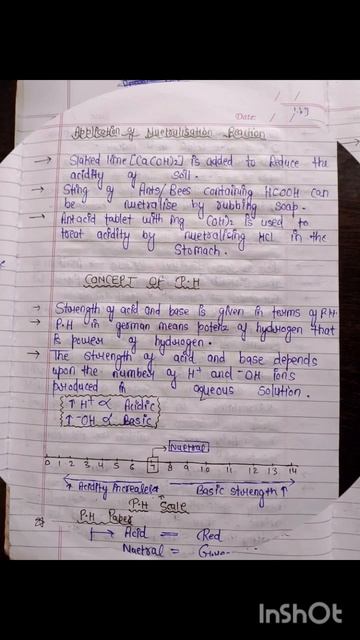 Date: / /
Application of Nuetralisation Reaction
→ Slaked lime [Ca(OH)2] is added to reduce the
acidity of soil.
→ Sting of Ants/Bees containing HCOOH can
be nuetralise by rubbing soap.
→ Antacid tablet with mg (OH)2 is used to
treat acidity by nuetralising HCl in the
Stomach.
CONCEPT OF P.H
→ Strength of acid and base is given in terms of P.H.
→ P.H in german means potenz of hydrogen that
is power of hydrogen.
→ The strength of acid and base depends
upon the number of H+ and -OH ions
produced in aqueous solution.
↑ H+ ∝ Acidic
↑ -OH ∝ Basic
Nuetral
0 1 2 3 4 5 6 7 8 9 10 11 12 13 14
Acidity increases Basic strength ↑
P.H Scale
P.H Paper
Acid = Red
Nuetral =
InShOt